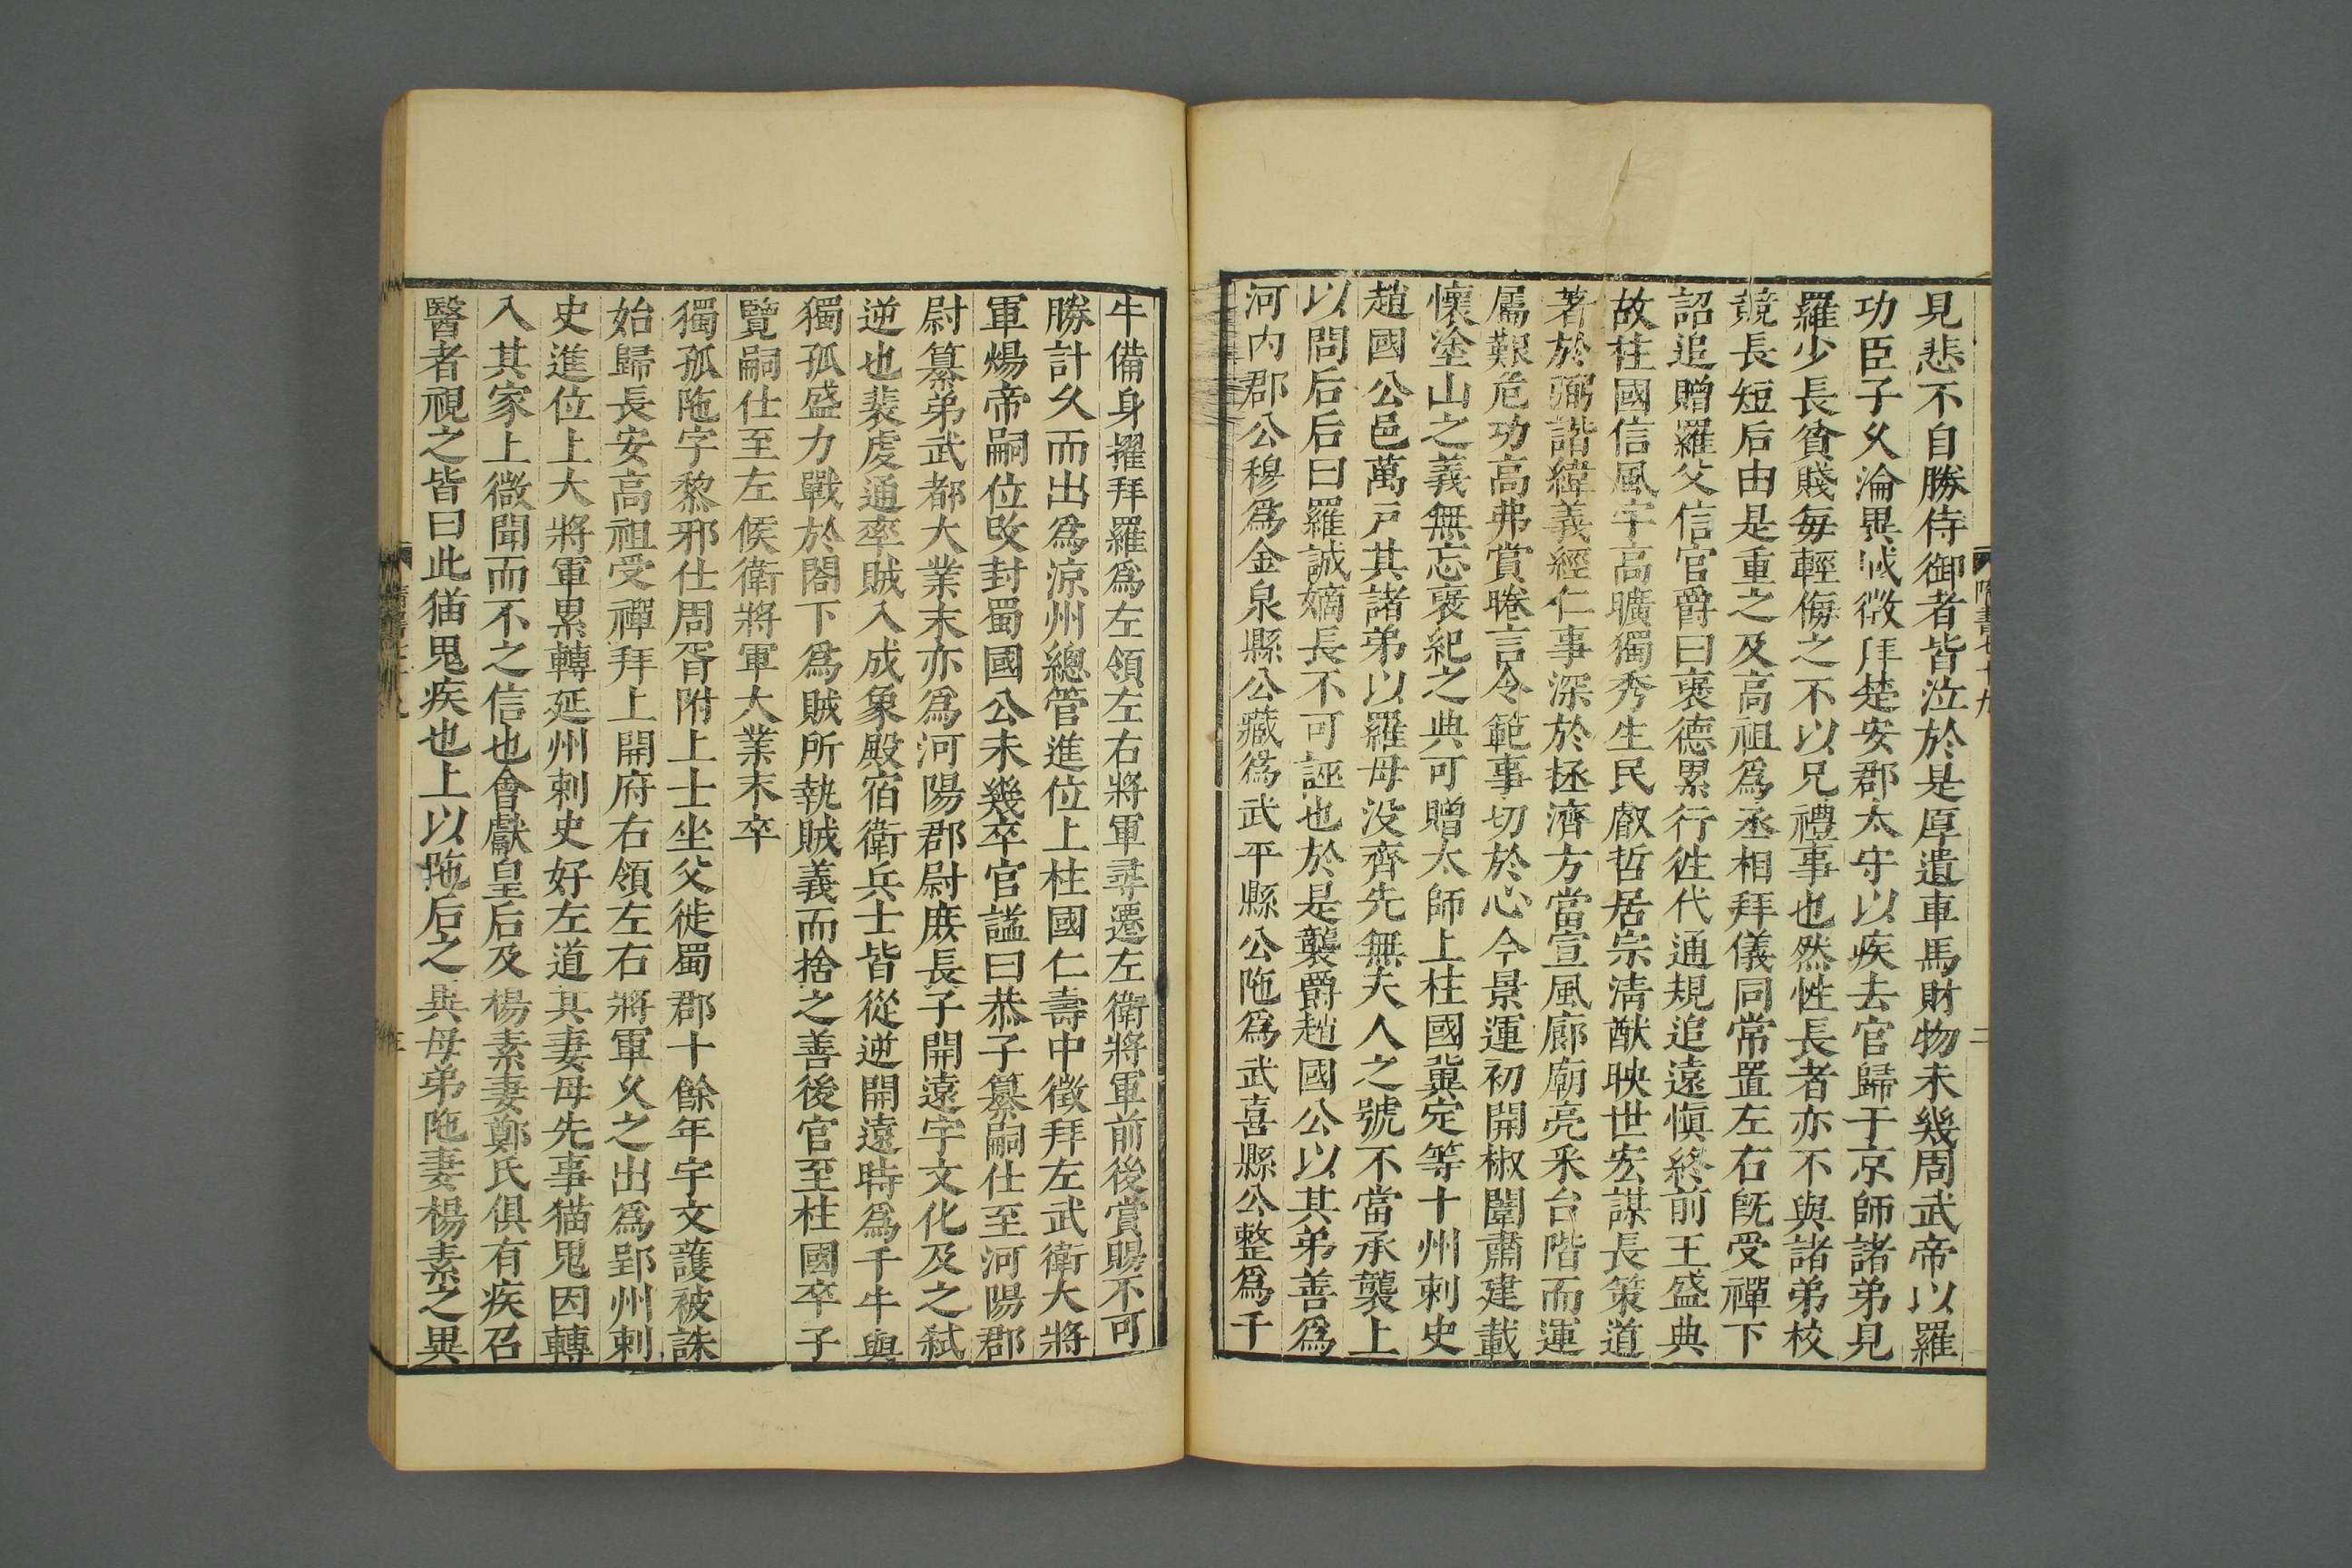 見悲不自勝侍御者皆泣於是厚遺車馬財物未幾周武帝以羅
功臣子久淪異域徵拜楚安郡太守以疾去官歸于京師諸弟見
羅少長貧賤每輕侮之不以兄禮事也然性長者亦不與諸弟校
競長短后由是重之及高祖爲丞相拜儀同常置左右旣受禪下
詔追贈羅父信官爵曰襃德累行徃代通規追遠愼終前王盛典
故柱國信風宇高曠獨秀生民叡哲居宗淸猷映世宏謀長策道
著於弼諧緯義經仁事深於拯濟方當宣風廊廟亮采台階而運
屬艱危功高弗賞睠言令範事切於心今景運初開椒闈肅建載
懷塗山之義無忘襃紀之典可贈太師上柱國冀定等十州刺史
趙國公邑萬戸其諸弟以羅母没齊先無夫人之號不當承襲上
以問后后曰羅誠嫡長不可誣也於是襲爵趙國公以其弟善爲
河内郡公穆爲金泉縣公藏爲武平縣公陁爲武喜縣公整爲千
隋書七十九
二
牛備身擢拜羅爲左領左右將軍尋遷左衛將軍前後賞賜不可
勝計久而出爲涼州總管進位上柱國仁壽中徵拜左武衛大將
軍煬帝嗣位改封蜀國公未幾卒官謚曰恭子纂嗣仕至河陽郡
尉纂弟武都大業末亦爲河陽郡尉庶長子開遠宇文化及之弑
逆也裴虔通率賊入成象殿宿衛兵士皆從逆開遠時爲千牛與
獨孤盛力戰於閤下爲賊所執賊義而捨之善後官至柱國卒子
覽嗣仕至左候衛將軍大業末卒
獨孤陁字黎邪仕周胥附上士坐父徙蜀郡十餘年宇文護被誅
始歸長安高祖受禪拜上開府右領左右將軍久之出爲郢州刺
史進位上大將軍累轉延州刺史好左道其妻母先事猫鬼因轉
入其家上微聞而不之信也會獻皇后及楊素妻鄭氏俱有疾召
醫者視之皆曰此猫鬼疾也上以陁后之異母弟陁妻楊素之異